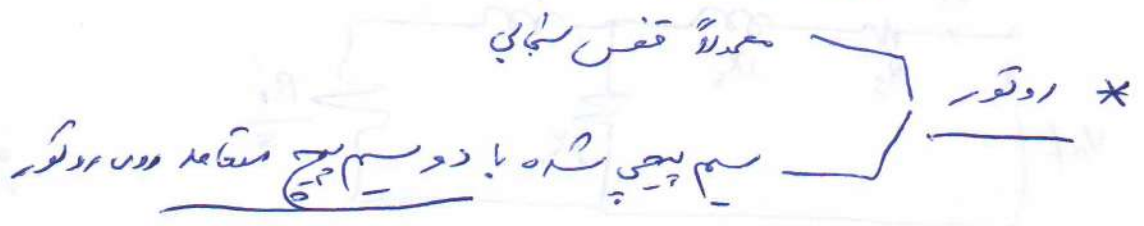 معمولاً قفس سنجابی
* روتور
سیم پیچی شده با دو سیم پیچ متعامد روی روتور